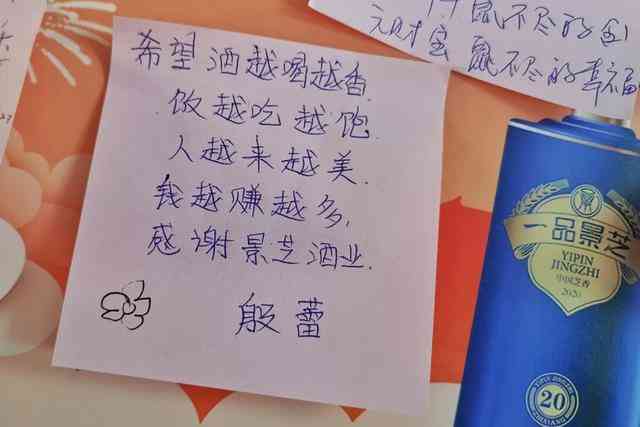 鼠不尽的
财宝 鼠不尽的幸福
希望酒越喝越香.
饭越吃越饱.
人越来越美.
钱越赚越多,
感谢景芝酒业.
殷蕾
一品景芝
YIPIN
JINGZHI
中国芝香
2020
YIPIN JINGZHI
20